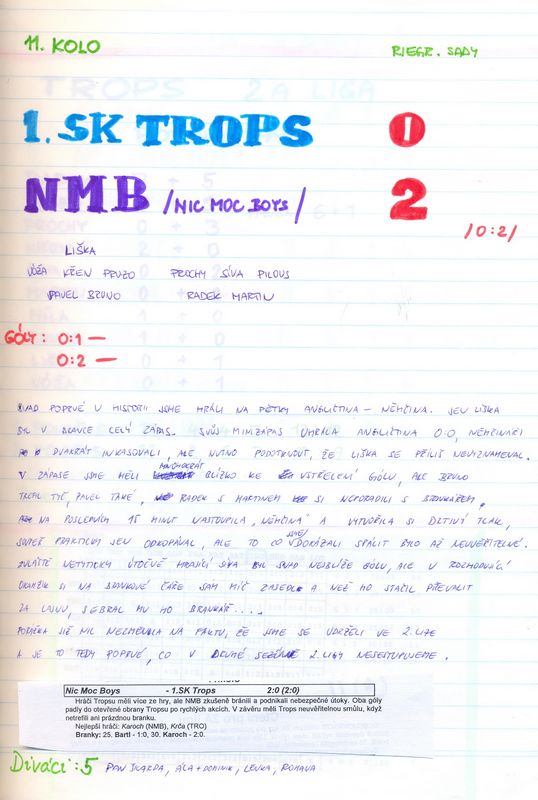 11. KOLO
RIEGR. SADY
1. SK TROPS 0
NMB /NIC MOC BOYS/ 2
/0:2/
LIŠKA
VÓŽA KŘEN PRUZO PROCHY SÍVA PILOUS
PAVEL BRUNO RADEK MARTIN
GÓLY: 0:1 —
0:2 —
SNAD POPRVÉ V HISTORII JSME HRÁLI NA PĚTKY ANGLIČTINA - NĚMČINA. JEN LIŠKA
BYL V BRANCE CELÝ ZÁPAS. SVŮJ MINIZÁPAS UHRÁLA ANGLIČTINA 0:0, NĚMČINÁŘI
DVAKRÁT INKASOVALI, ALE NUTNO PODOTKNOUT, ŽE LIŠKA SE PŘÍLIŠ NEVYZNAMENAL.
V ZÁPASE JSME MĚLI MNOHOKRÁT BLÍZKO KE VSTŘELENÍ GÓLU, ALE BRUNO
TREFIL TYČ, PAVEL TAKÉ, RADEK S MARTINEM SI NEPORADILI S BRANKÁŘEM.
NA POSLEDNÍCH 15 MINUT NASTOUPILA "NĚMČINA" A VYTVOŘILA SI DRTIVÝ TLAK,
SOUPEŘ PRAKTICKY JEN ODKOPÁVAL, ALE TO CO JSME DOKÁZALI SPÁLIT BYLO AŽ NEUVĚŘITELNÉ.
ZVLÁŠTĚ NETYPICKY ÚTOČNĚ HRAJÍCÍ SÍVA BYL SNAD NEJBLÍŽE GÓLU, ALE V ROZHODUJÍCÍ
OKAMŽIK SI NA BRANKOVÉ ČÁŘE SÁM MÍČ ZASEDL A NEŽ HO STAČIL PŘEVALIT
ZA LAJNU, SEBRAL MU HO BRANKÁŘ....
PORÁŽKA SIC NIC NEZMĚNILA NA FAKTU, ŽE JSME SE UDRŽELI VE 2. LIZE
A JE TO TEDY POPRVÉ, CO V DRUHÉ SEZÓNĚ 2. LIGY NESESTUPUJEME.
Nic Moc Boys - 1.SK Trops 2:0 (2:0)
Hráči Tropsu měli více ze hry, ale NMB zkušeně bránili a podnikali nebezpečné útoky. Oba góly
padly do otevřené obrany Tropsu po rychlých akcích. V závěru měli Trops neuvěřitelnou smůlu, když
netrefili ani prázdnou branku.
Nejlepší hráči: Karoch (NMB), Krča (TRO)
Branky: 25. Bartl - 1:0, 30. Karoch - 2:0.
Diváci: 5 PAN ŠKARDA, ÁLA + DOMINIK, LENKA, ROMANA